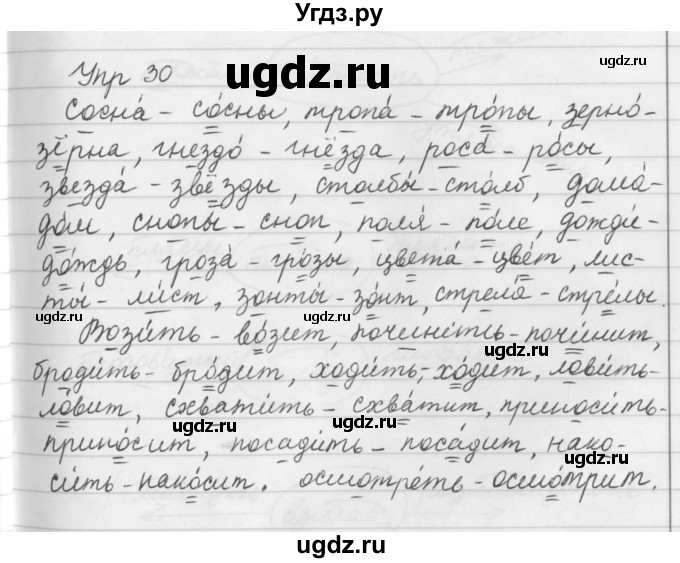 Угдз.ру
Упр 30
ugdz.ru
Сосна́ – со́сны, тропа́ – тро́пы, зерно́-
зёрна, гнездо́ – гнёзда, роса́ – ро́сы,
звезда́ – звёзды, столбы́ – столб, дома́-
до́м, снопы́ – сноп, поля́ – по́ле, дожди́-
до́ждь, гроза́ – гро́зы, цвета́ – цве́т, лис-
ты́ – ли́ст, зонты́ – зо́нт, стрела́ – стре́лы.
ugdz.ru
ugdz.ru
Вози́ть – во́зит, почини́ть – почи́нит,
ugdz.ru
броди́ть – бро́дит, ходи́ть – хо́дит, лови́ть-
ло́вит, схвати́ть – схва́тит, приноси́ть-
ugdz.ru
прино́сит, посади́ть – поса́дит, нако-
ugdz.ru
си́ть – нако́сит. осмотре́ть – осмо́трит.
ugdz.ru
ugdz.ru